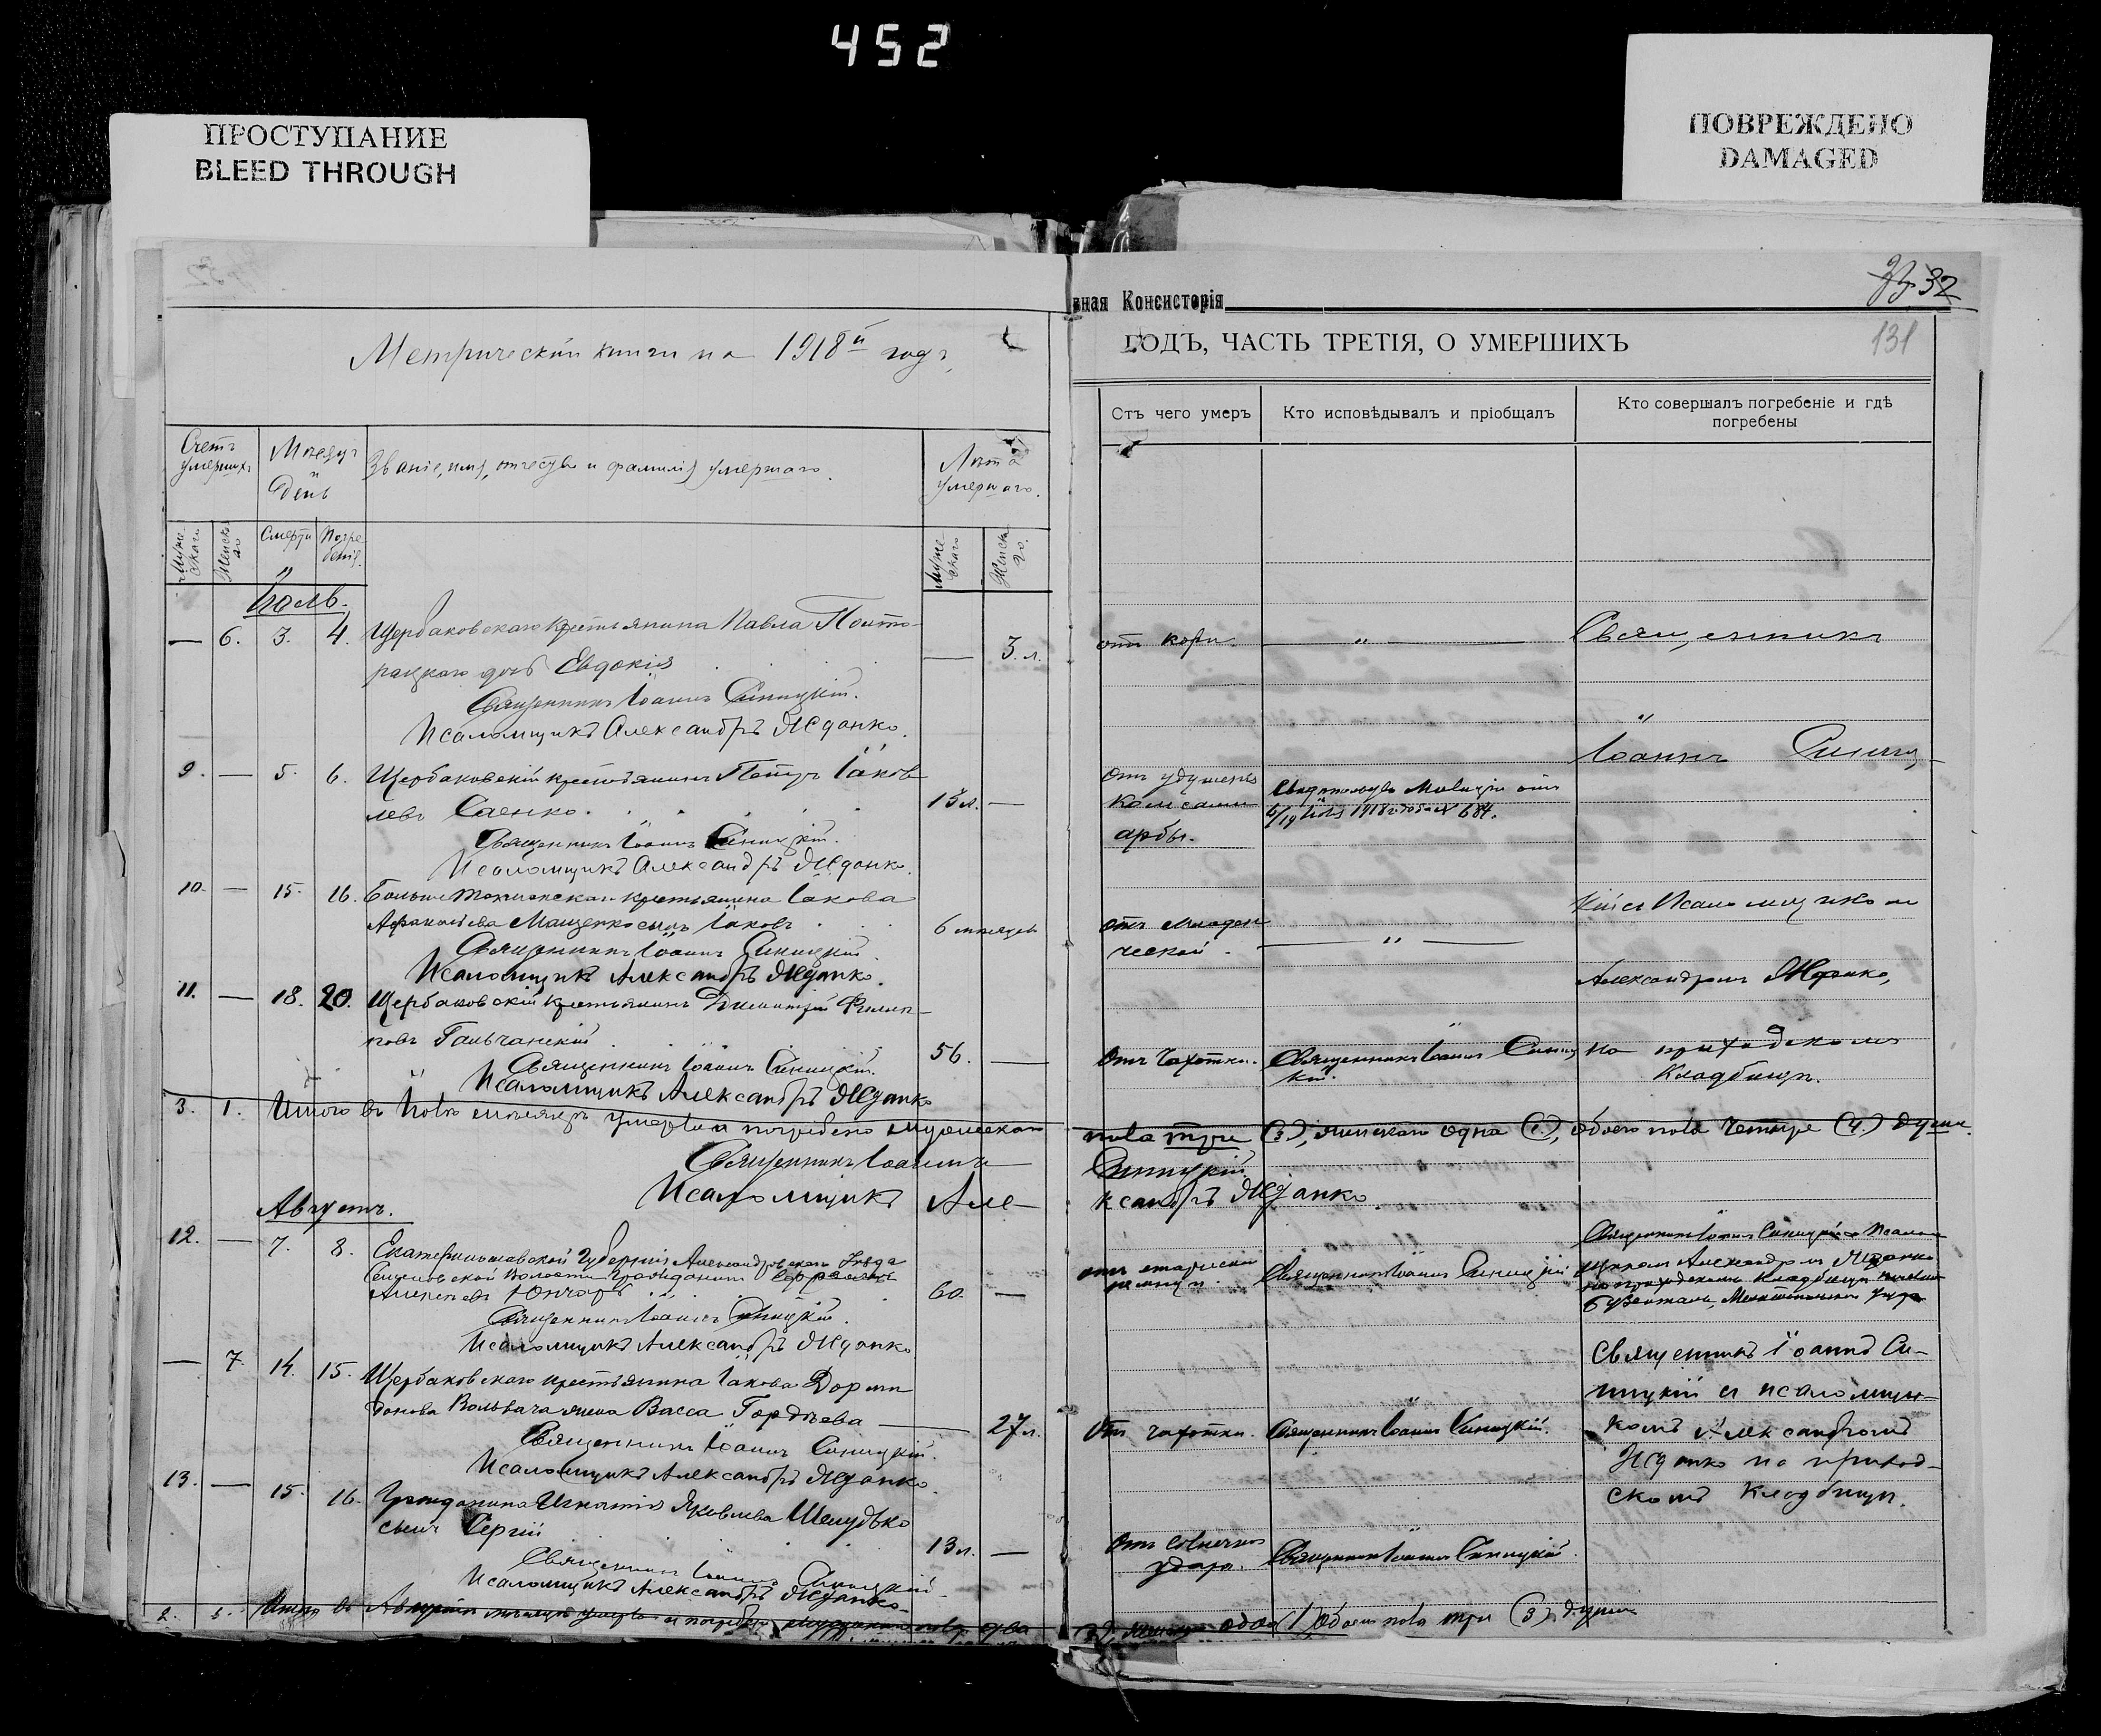 452
ПРОСТУПАНИЕ
BLEED THROUGH
ПОВРЕЖДЕНО
DAMAGED
вная Консисторія
32
131
Метрической книги на 1918й годъ,
ГОДЪ, ЧАСТЬ ТРЕТІЯ, О УМЕРШИХЪ
Счетъ умершихъ
Мѣсяцъ и день
Званіе, имя, отчество и фамилія умершаго.
Лѣта умершаго.
Мужескаго
Женскаго
Смерти
Погребенія.
Мужескаго
Женскаго.
Отъ чего умеръ
Кто исповѣдывалъ и пріобщалъ
Кто совершалъ погребеніе и гдѣ погребены
Іюль.
— 6. 3. 4. Щербаковскаго крестьянина Павла
дочь Евдокія — 3. л. отъ кори. — „ — Священникъ
Священникъ Іоаннъ Синицкій.
Псаломщикъ Александръ Жданко.
9. — 5. 6. Щербаковскій крестьянинъ Петръ Іаков-
левъ Саенко. 13 л. —
Священникъ Іоаннъ Синицкій.
Псаломщикъ Александръ Жданко.
Отъ удушенія
колесами
арбы.
1918 года № 684.
Іоаннъ Синиц-
10. — 15. 16. крестьянина Іакова
Мащенко сынъ Іаковъ 6 мѣсяцевъ
Священникъ Іоаннъ Синицкій.
Псаломщикъ Александръ Жданко.
отъ младен
ческой. — „ —
кій съ Псаломщикомъ
Александромъ Жданко,
11. — 18. 20. Щербаковскій крестьянинъ Димитрій Филип-
повъ Гальчанскій 56. —
Священникъ Іоаннъ Синицкій.
Псаломщикъ Александръ Жданко
Отъ чахотки. Священникъ Іоаннъ Синиц
кій.
на приходскомъ
кладбищѣ.
3. 1. Итого въ Іюлѣ мѣсяцѣ умерло и погребено мужескаго
пола три (3), женскаго одна (1), обоего пола четыре (4) души.
Священникъ Іоаннъ Синицкій
Псаломщикъ Александръ Жданко
Августъ.
12. — 7. 8. Екатеринославской Губерніи Александровскаго Уѣзда
волости гражданинъ
Гончаръ 60. —
Священникъ Іоаннъ Синицкій.
Псаломщикъ Александръ Жданко
отъ старческой
Священникъ Іоаннъ Синицкій
Священникъ Іоаннъ Синицкій съ Псалом-
щикомъ Александромъ Жданко
на приходскомъ кладбищѣ
— 7. 14. 15. Щербаковскаго крестьянина Іакова Дорми
донова Вольвача жена Васса Гордѣева — 27 л.
Священникъ Іоаннъ Синицкій.
Псаломщикъ Александръ Жданко.
Отъ чахотки. Священникъ Іоаннъ Синицкій.
Священникъ Іоаннъ Си-
ницкій съ псаломщи-
комъ Александромъ
Жданко на приход-
скомъ кладбищѣ.
13. — 15. 16. Гражданина Игнатія Яковлева Шелудько
сынъ Сергій 13 л. —
Священникъ Іоаннъ Синицкій
Псаломщикъ Александръ Жданко.
Отъ солнечнаго
удара. Священникъ Іоаннъ Синицкій.
2. 1. Итого въ Августѣ мѣсяцѣ умерло и погребено мужескаго пола два
одна (1) обоего пола три (3) души